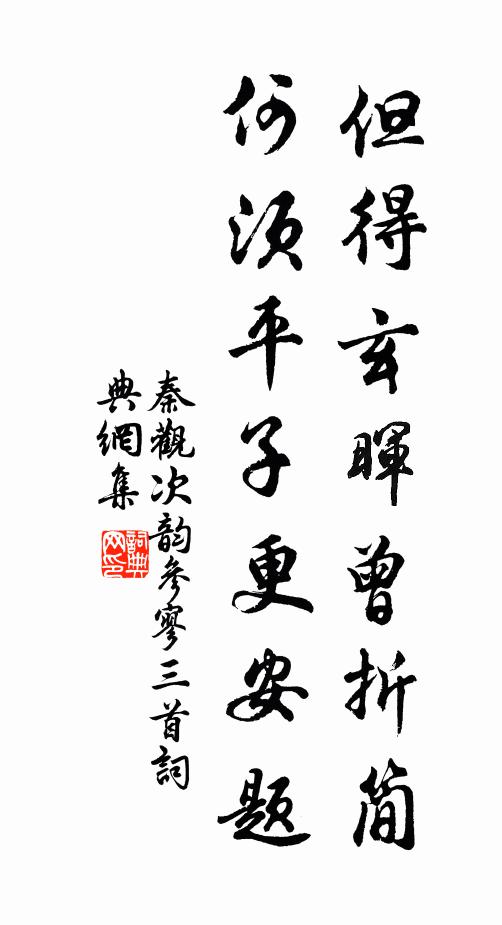 但得玄暉曾折簡
何須平子更安題
秦觀次韵參寥三首詞
典網集
詞典
网印